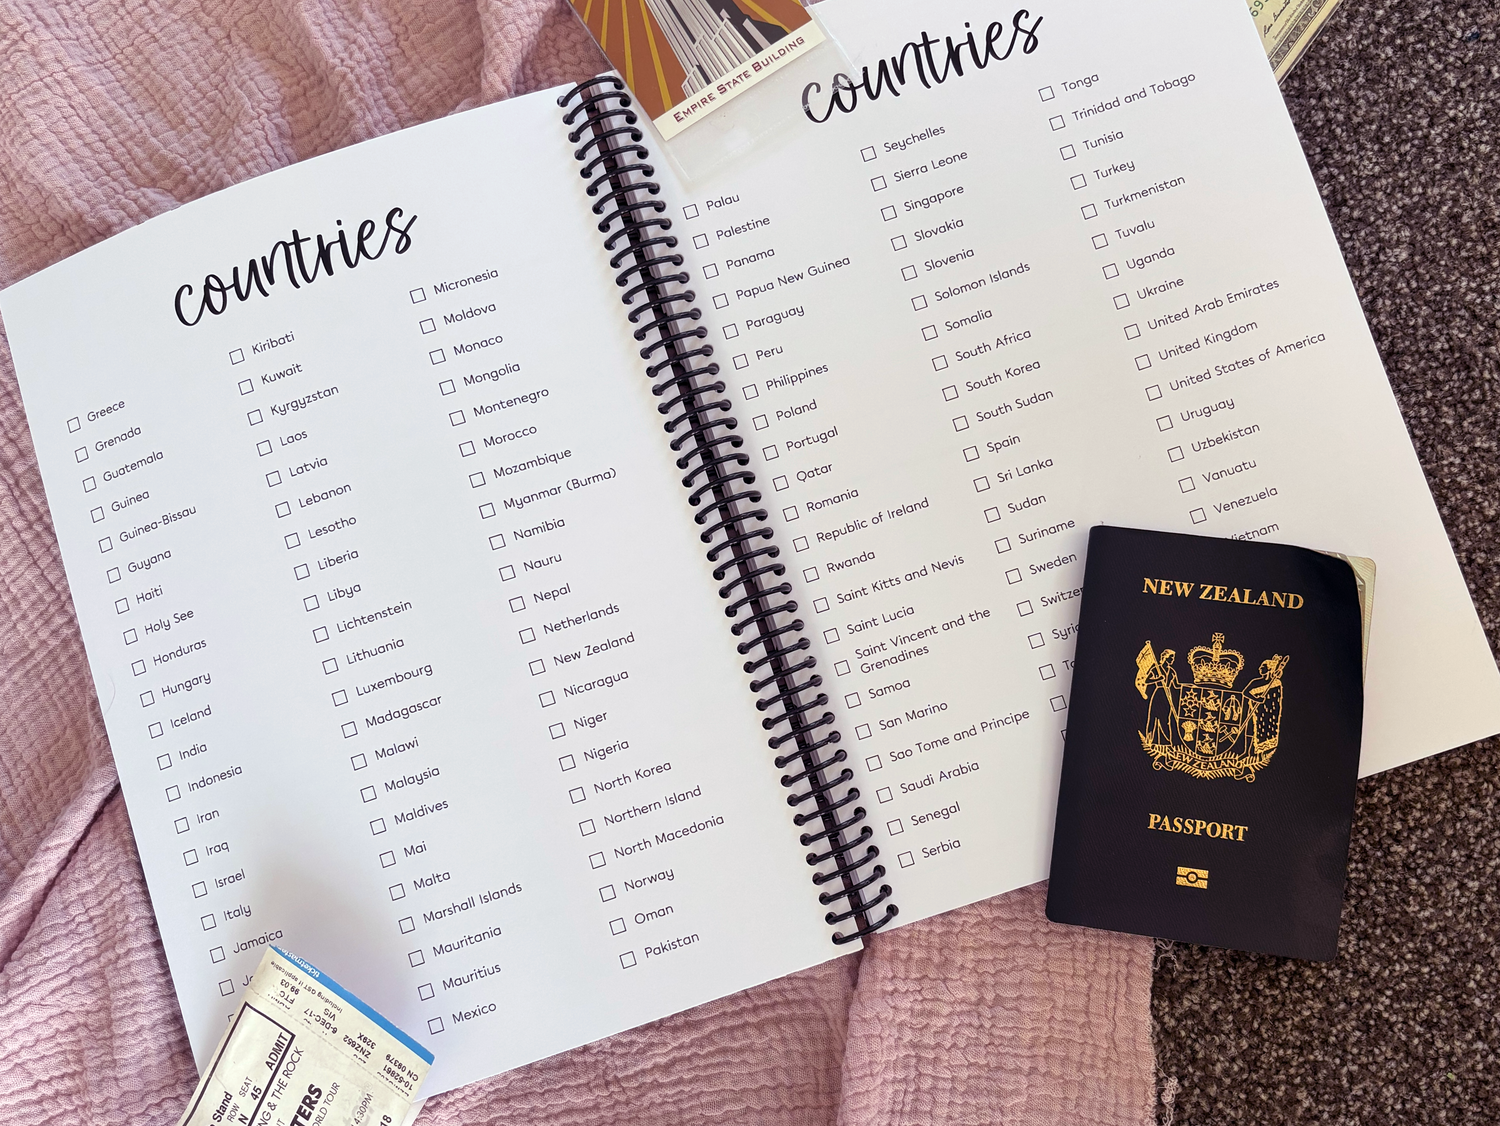 countries
Greece
Grenada
Guatemala
Guinea
Guinea-Bissau
Guyana
Haiti
Holy See
Honduras
Hungary
Iceland
India
Indonesia
Iran
Iraq
Israel
Italy
Jamaica
Kiribati
Kuwait
Kyrgyzstan
Laos
Latvia
Lebanon
Lesotho
Liberia
Libya
Lichtenstein
Lithuania
Luxembourg
Madagascar
Malawi
Malaysia
Maldives
Mai
Malta
Marshall Islands
Mauritania
Mauritius
Mexico
Micronesia
Moldova
Monaco
Mongolia
Montenegro
Morocco
Mozambique
Myanmar (Burma)
Namibia
Nauru
Nepal
Netherlands
New Zealand
Nicaragua
Niger
Nigeria
North Korea
Northern Island
North Macedonia
Norway
Oman
Pakistan
EMPIRE STATE BUILDING
countries
Palau
Palestine
Panama
Papua New Guinea
Paraguay
Peru
Philippines
Poland
Portugal
Qatar
Romania
Republic of Ireland
Rwanda
Saint Kitts and Nevis
Saint Lucia
Saint Vincent and the
Grenadines
Samoa
San Marino
Sao Tome and Principe
Saudi Arabia
Senegal
Serbia
Seychelles
Sierra Leone
Singapore
Slovakia
Slovenia
Solomon Islands
Somalia
South Africa
South Korea
South Sudan
Spain
Sri Lanka
Sudan
Suriname
Sweden
Switzer
Syri
Tonga
Trinidad and Tobago
Tunisia
Turkey
Turkmenistan
Tuvalu
Uganda
Ukraine
United Arab Emirates
United Kingdom
United States of America
Uruguay
Uzbekistan
Vanuatu
Venezuela
Vietnam
NEW ZEALAND
NEW ZEALAND
PASSPORT
ticketmaster
including GST if applicable
99.03
FTC
VIS
6-DEC-17
329X
ZNZ652
CN 09379
10-52861
ADMIT
Stand
ROW SEAT
N 45
NG & THE ROCK
TERS
ORLD TOUR
4:30PM
18